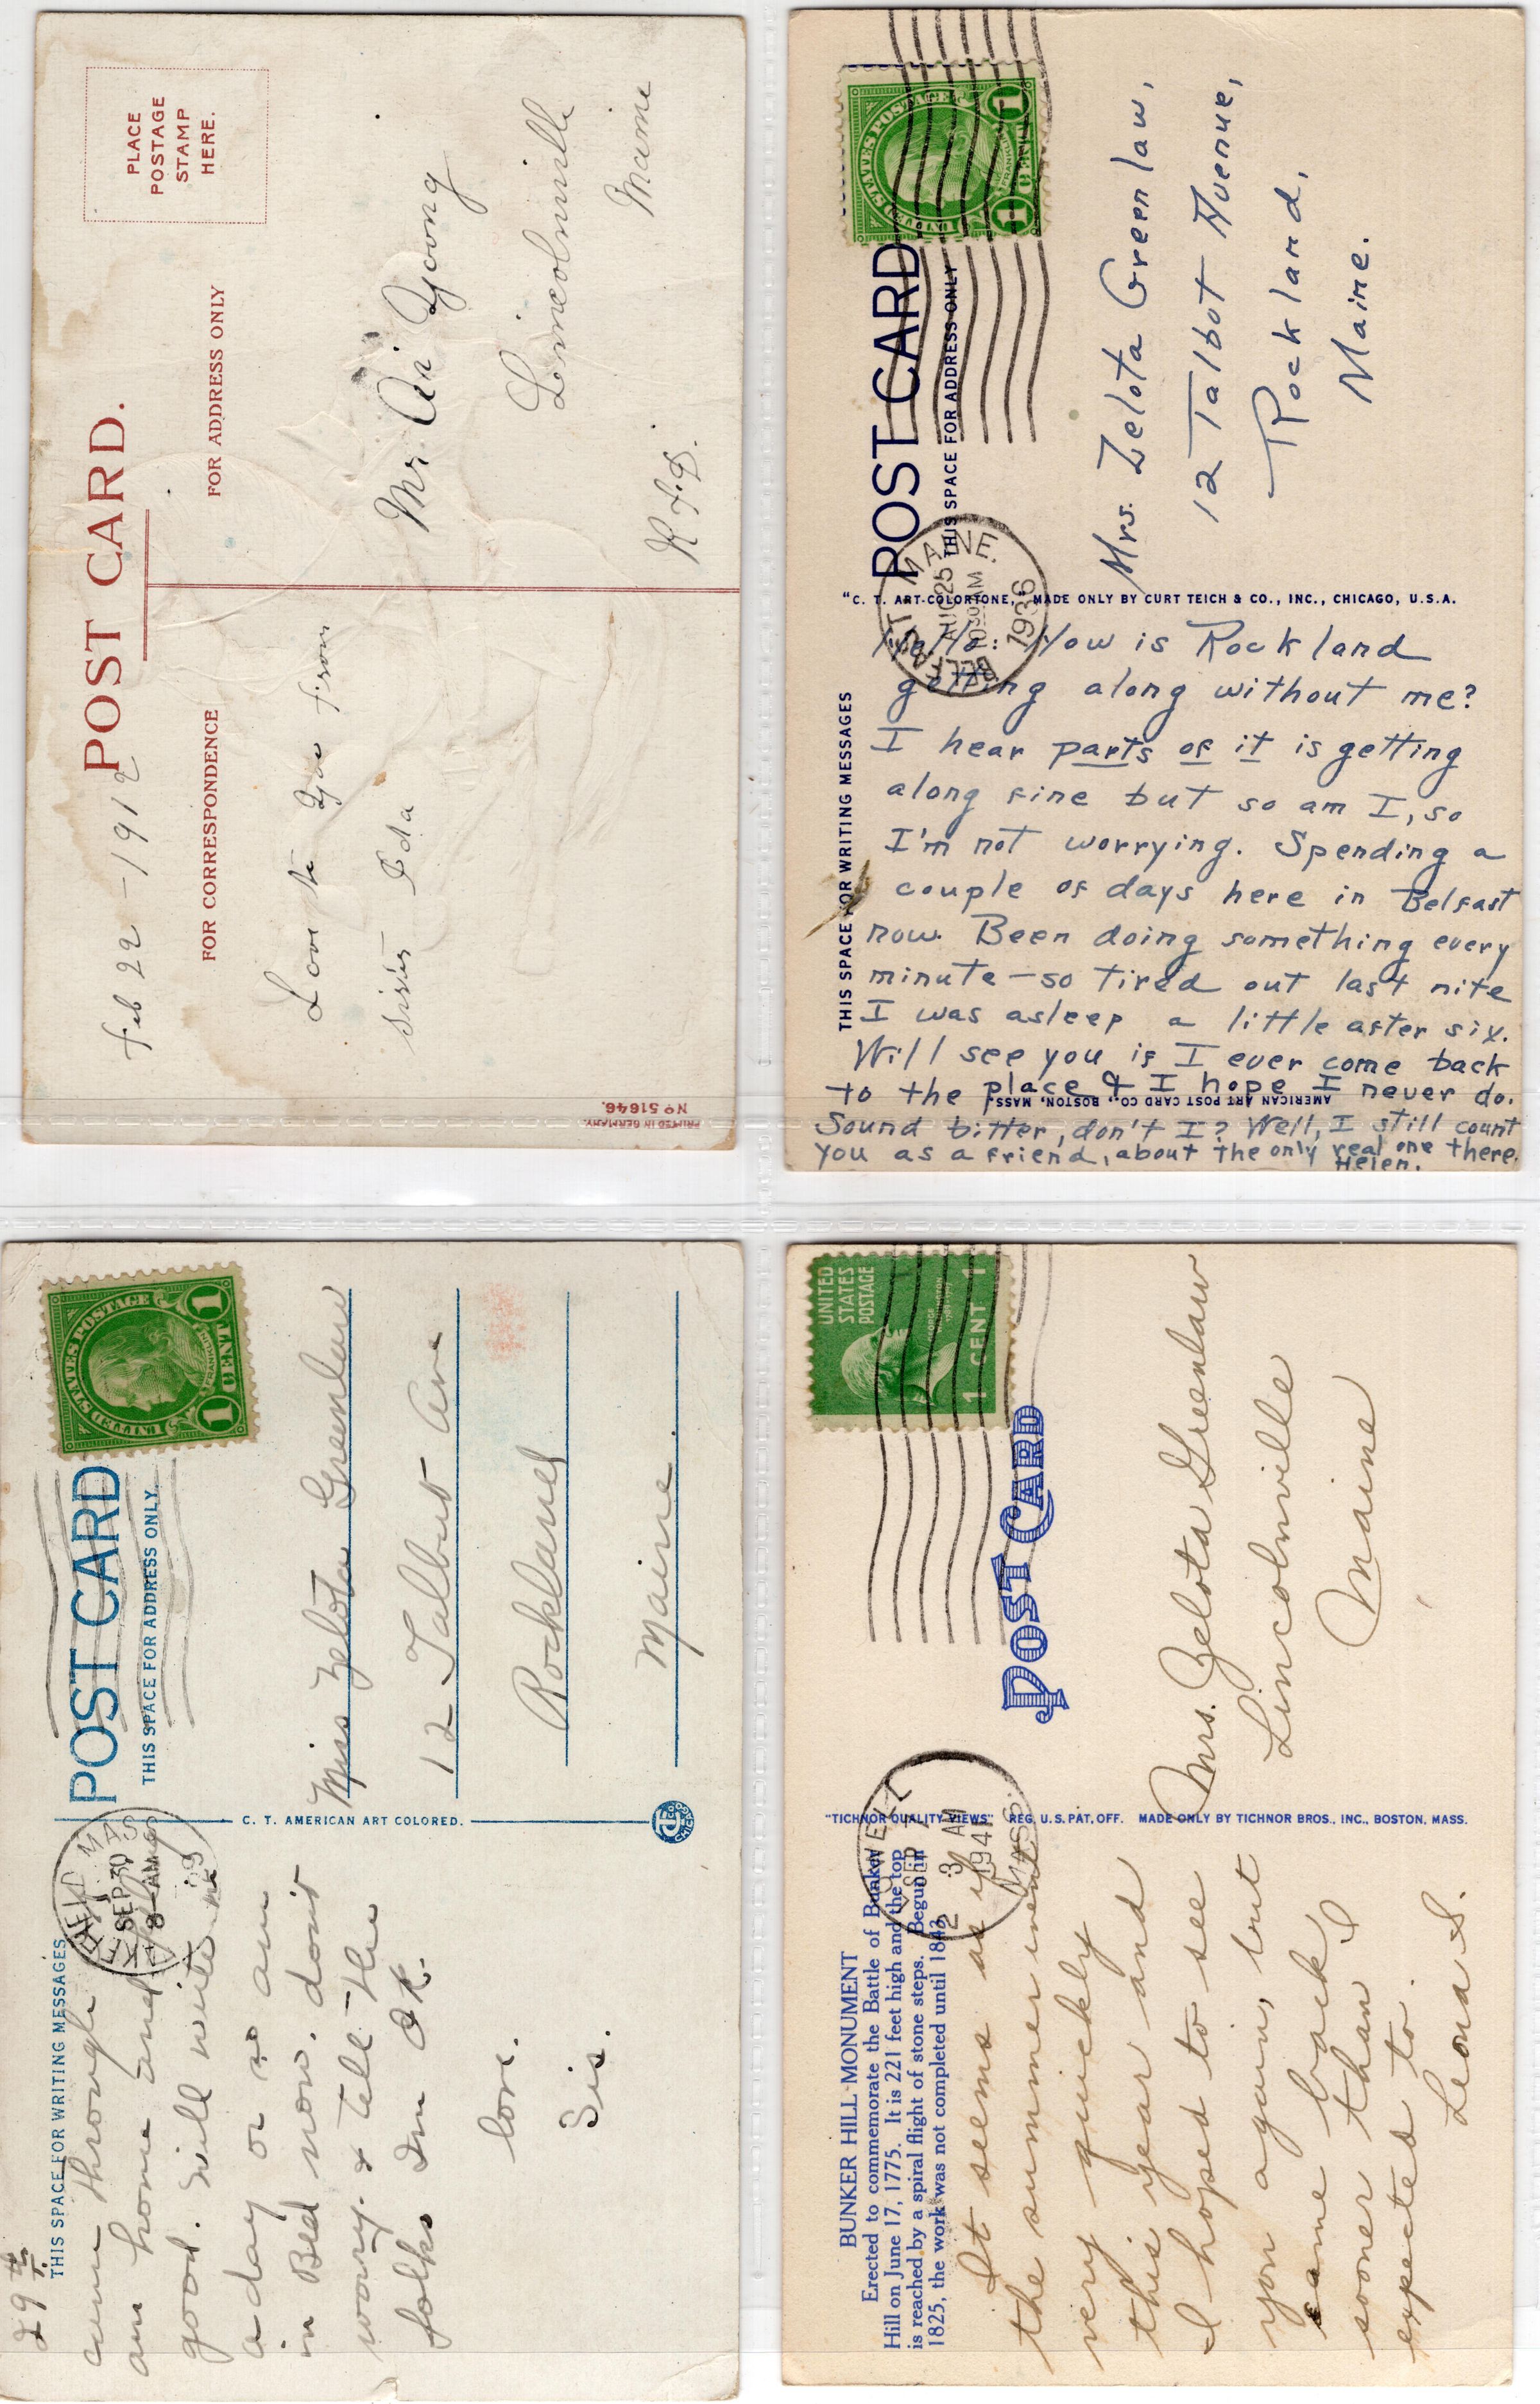 POST CARD.
PLACE
POSTAGE
STAMP
HERE.
Feb 22 - 1912
FOR CORRESPONDENCE
FOR ADDRESS ONLY
Love to you from
sister Ida
Mr Ari Young
Lincolnville
R.F.D. Maine
PRINTED IN GERMANY.
No 51646.
POST CARD
THIS SPACE FOR ADDRESS ONLY
UNITED STATES POSTAGE
FRANKLIN
1 CENT 1
BELFAST MAINE.
AUG 25
10 30 AM
1936
Mrs. Zelota Greenlaw,
12 Talbot Avenue,
Rockland,
Maine.
"C. T. ART-COLORTONE," MADE ONLY BY CURT TEICH & CO., INC., CHICAGO, U.S.A.
THIS SPACE FOR WRITING MESSAGES
Hello: How is Rockland
getting along without me?
I hear parts of it is getting
along fine but so am I, so
I'm not worrying. Spending a
couple of days here in Belfast
now. Been doing something every
minute - so tired out last nite
I was asleep a little after six.
Will see you if I ever come back
to the place & I hope I never do.
Sound bitter, don't I? Well, I still count
you as a friend, about the only real one there.
Helen.
AMERICAN ART POST CARD CO., BOSTON, MASS.
29th
POST CARD
THIS SPACE FOR WRITING MESSAGES
THIS SPACE FOR ADDRESS ONLY.
UNITED STATES POSTAGE
FRANKLIN
1 CENT 1
SEP 30
8 AM
came through
am home and
good. Will write
a day or so am
in Bed now. don't
worry. & tell the
folks Im OK.
love.
Sis.
C. T. AMERICAN ART COLORED.
CHICAGO
Miss Zelota Greenlaw
12 Talbut Ave
Rockland
Maine.
POST CARD
UNITED
STATES
POSTAGE
GEORGE WASHINGTON
1 CENT 1
LOWELL
SEP 2
3 AM
1941
MASS.
"TICHNOR QUALITY VIEWS" REG. U.S. PAT. OFF. MADE ONLY BY TICHNOR BROS., INC., BOSTON, MASS.
BUNKER HILL MONUMENT
Erected to commemorate the Battle of Bunker
Hill on June 17, 1775. It is 221 feet high and the top
is reached by a spiral flight of stone steps. Begun in
1825, the work was not completed until 1843.
It seems as if
the summer went
very quickly
this year and
I hoped to see
you again, but
came back
sooner than I
expected to.
Leona S.
Mrs. Zelota Greenlaw
Lincolnville
Maine